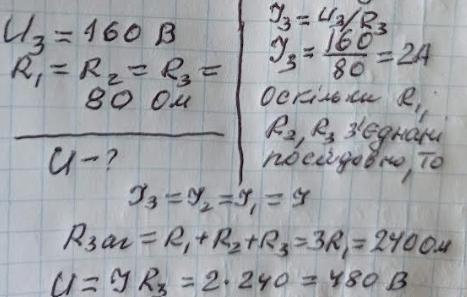 U₃ = 160 В
R₁ = R₂ = R₃ =
80 Ом
U - ?
I₃ = U₃/R₃
I₃ = 160/80 = 2А
оскільки R₁,
R₂, R₃ з'єднані
послідовно, то
I₃ = I₂ = I₁ = I
Rзаг = R₁ + R₂ + R₃ = 3R₁ = 240 Ом
U = I R₃ = 2 · 240 = 480 В